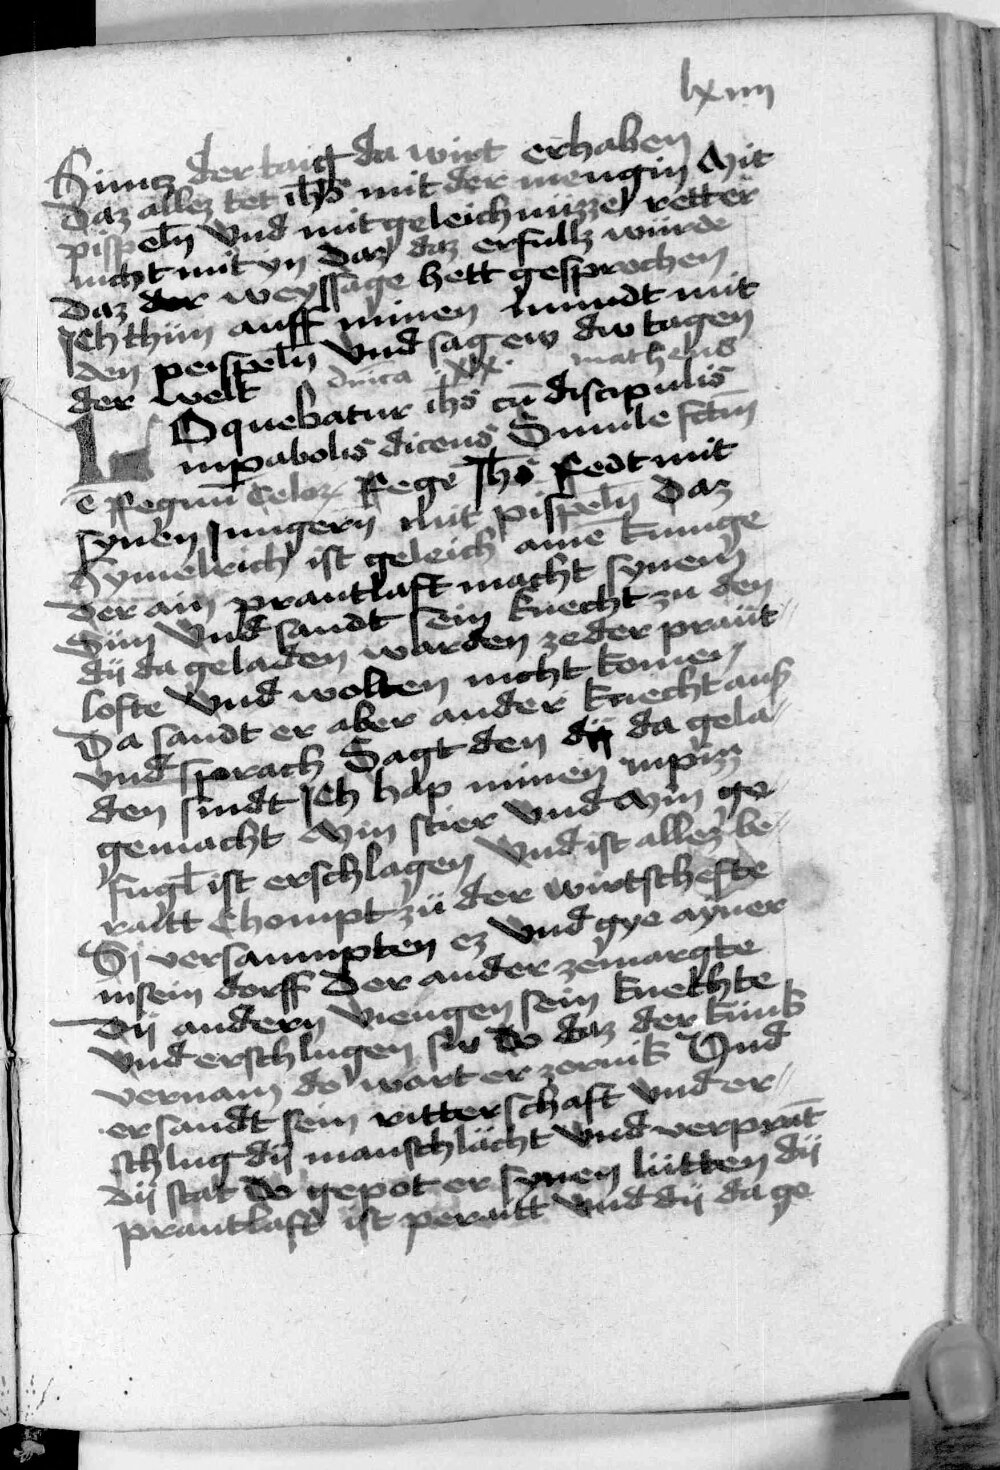 lxiiij
Suntz der taig da wirt erhaben
Daz allez tet ih̄s mit der mengin Mit
pispeln̄ Vnd mit geleichnuzze rettet
nicht mit yn Daz daz erfullz wurde
Daz der weyssage hett gesprochen
Ich thün auff minen mundt mit
den peispeln̄ Vnd sag ew dw tagen
der Welt dnica .xx. matheus
LOquebatur ih̄s cū discipulis
in pabolis dicens Simile fctm̄
ē Regnū Celoꝝ Rege Ih̄s Redt mit
synen Jungern Mit pispeln̄ Daz
Hymelrich ist geleich aimē kunge
Der ain prautlaft macht synem
Sün Vnd sandt sein knecht zu den
dij da geladen warden ze der praüt
lofte Vnd wolten nicht komen
Da sandt er aber ander knecht auß
vnd sprach Sagt den dij da gela
den sindt Ich hap minen inpiz
gemacht Min stier Vnd Min ge
fugl̄ ist erschlagen Vnd ist allez be
raitt Chompt zü der wirtschefte
Si versaumpten ez Vnd gye ayner
in sein dorff Der ander ze margte
Dij andern viengen sein knechte
Vnd erschlugen sw Do daz der künk
vernam do wart er zornik Vnd
er sandt sein ritterschaft vnd er
schlug dij manschlächt Vnd verprāt
dij stat Do gepot er synen lütten dij
prautlaft ist peraitt Vnd dij da ge